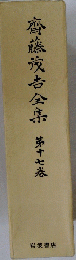 齋藤茂吉全集
第十七卷
岩波書店